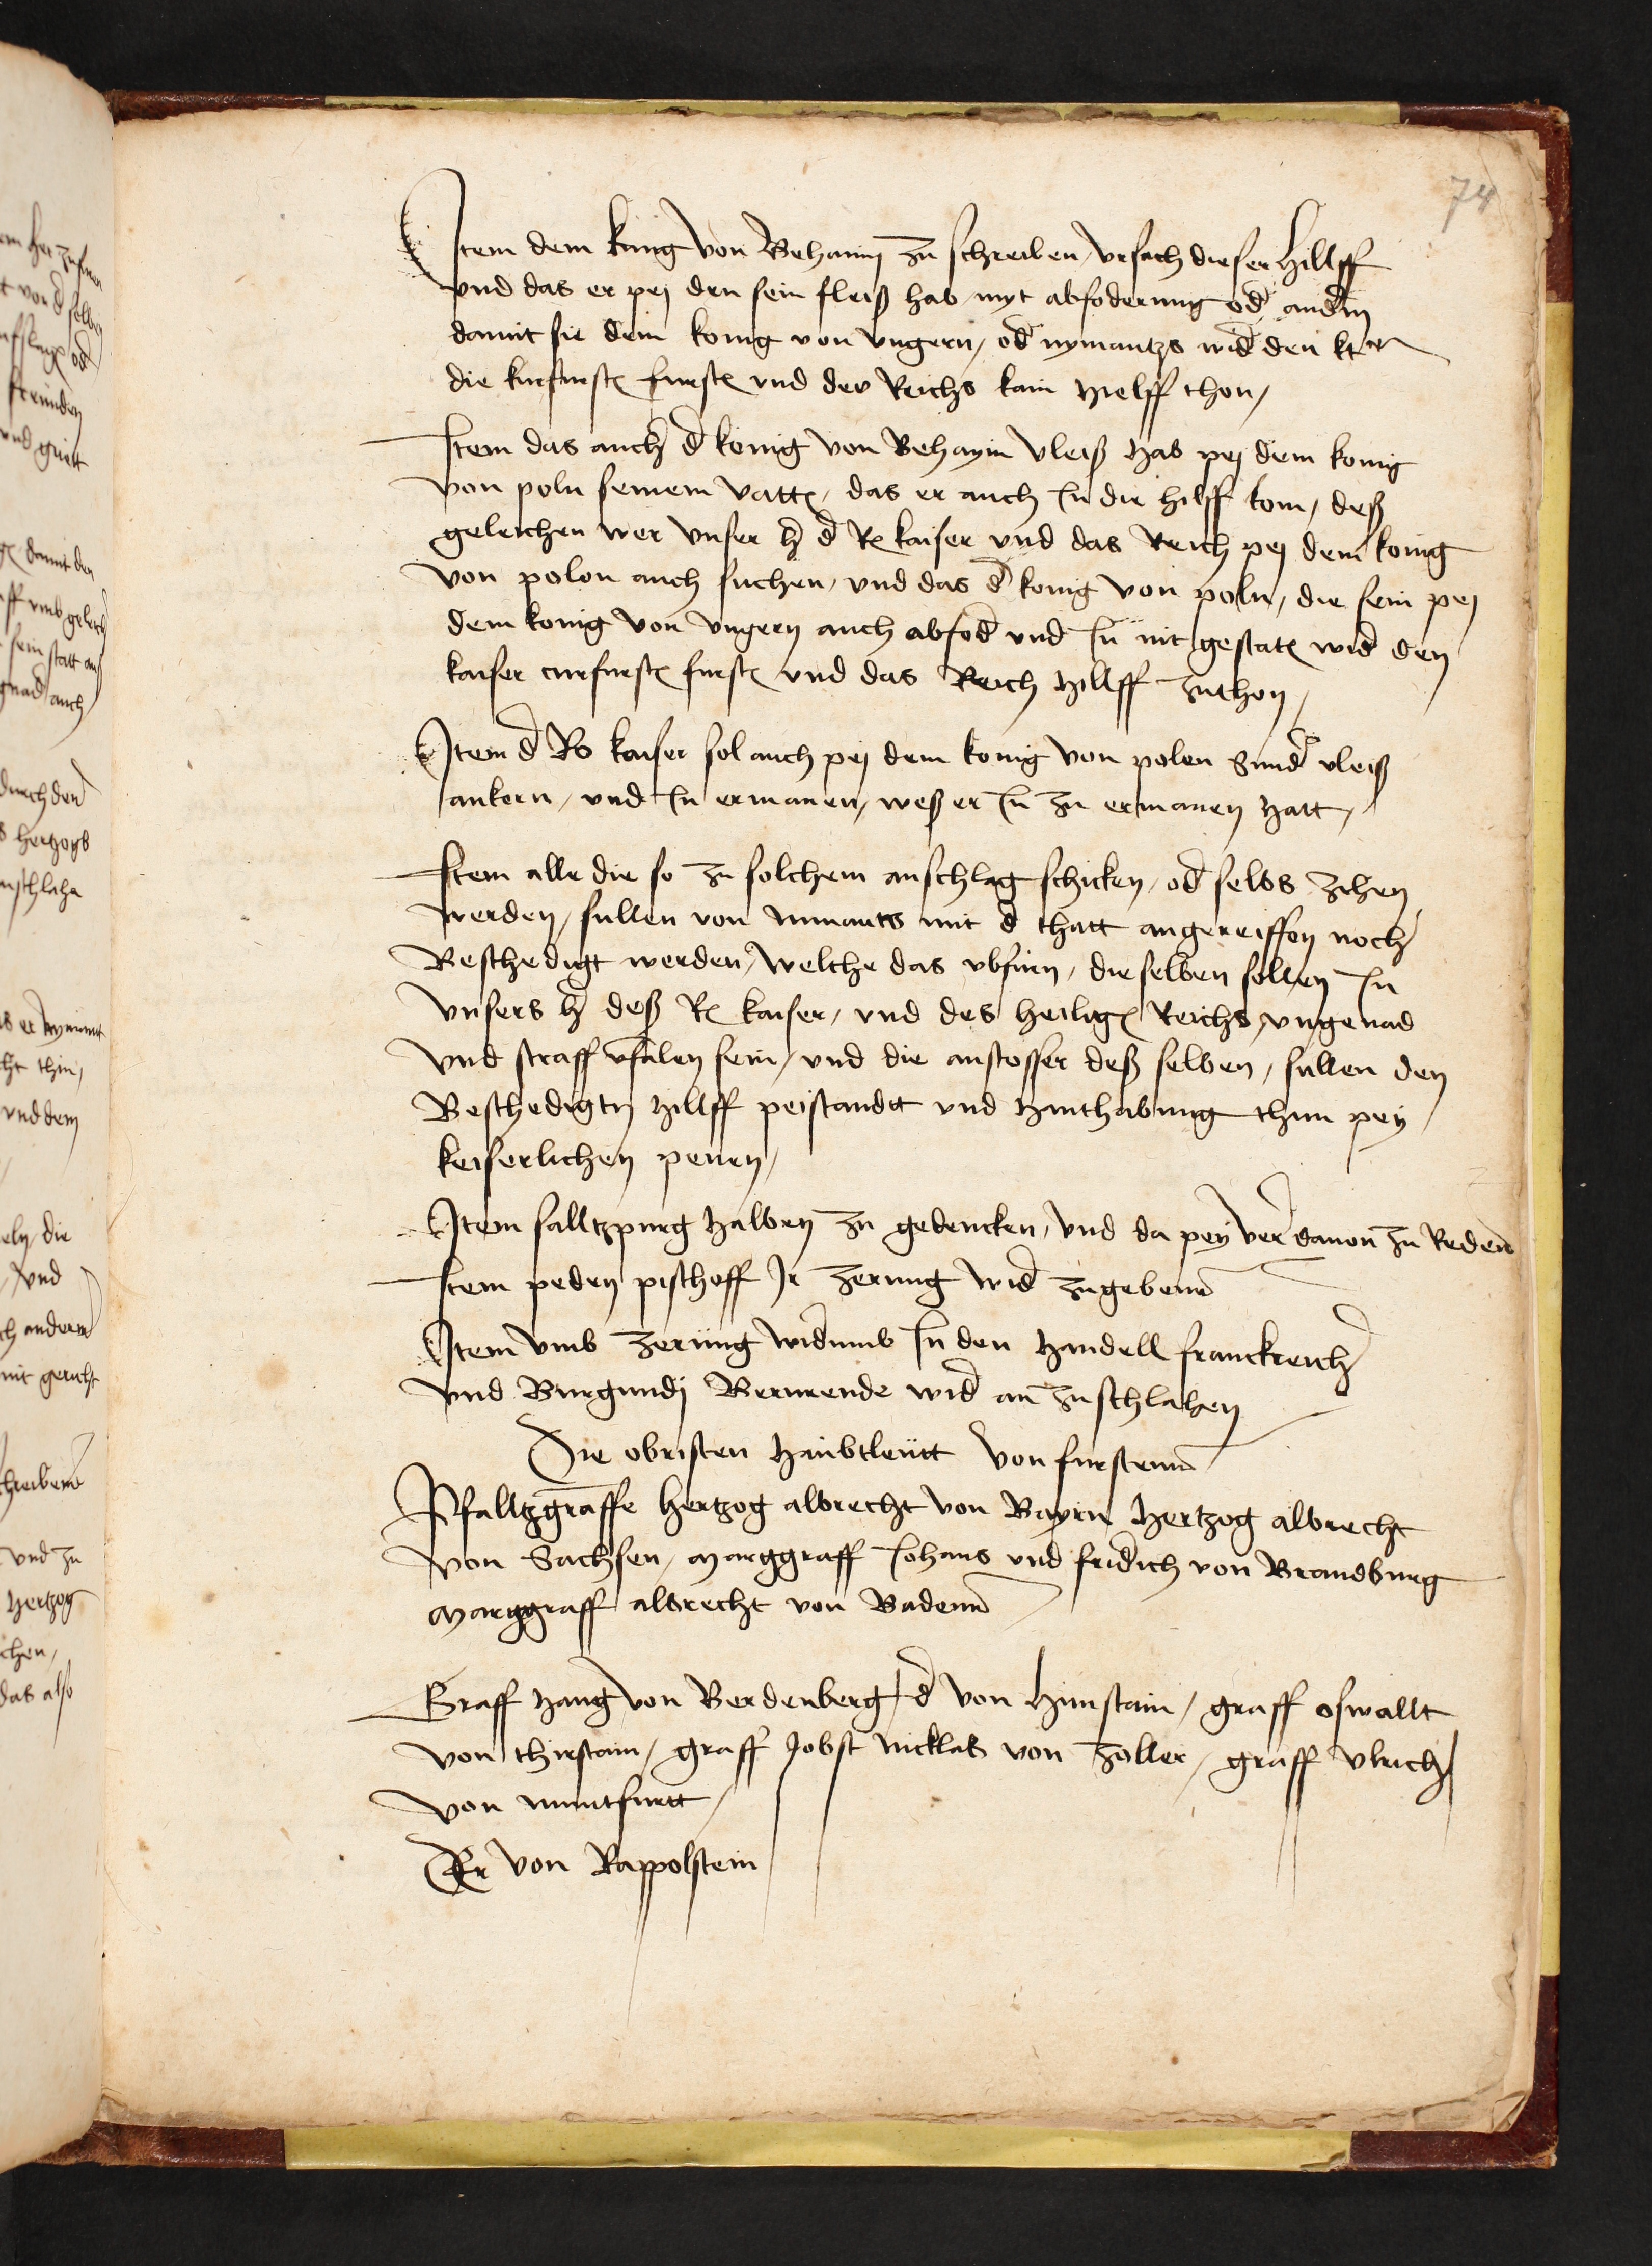 74
Item dem kung von Behaim zu schreiben vrsach dieser hillff
vnd das er pej den sein fleiß hab myt abfoderung od andm
damit sie dem konig von vngern / od nymantzs wid den kr
die kurfurst furst vnd des Reichs kain hielff thon /
Item das auch d konig von Behaym vleiß hab pej dem konig
von poln seinem vatt / das er auch In die hilff kom / deß
geleichen wer vnser h d R kaiser vnd das Reich pej dem konig
von polon auch suchen / vnd das d konig von poln / die sein pej
dem konig von vngern auch abfod vnd In nit gestat wid den
kaiser curfurst furst vnd das Reich hillff zuthon /
Item d Ro kaiser sol auch pej dem konig von polen Sund vleiß
ankern / vnd In ermanen / weß er In zu ermanen hatt /
Item alle die so zu solchem anschlag schicken / od selbs zihen
werden / sullen von nimants mit d thatt angereiffen noch
Beschedigt werden / welche das vbfurn / dieselben sollen In
vnsers h deß R kaiser / vnd des heilig Reichs vngenad
vnd straff vfalen sein / vnd die anstosser deß selben / sullen den
Beschedigtn hillff peistandt vnd hanthabung thun pey
keiserlichen penen /
Item salltzpurg halben zu gedencken / vnd da pey ver dauon zu Reden
Item peden pischoff Ir zerung wid zugebenn
Item vmb zerung widumb In den handell franckreich
vnd Burgundj Berurende wid an zuschlahen
Die obristen haubtleutt von furstenn
Pfalltzgraffe hertzog albrecht von Bayrn hertzog albrecht
von Sachsen / marggraff Johans vnd fridich von Brandburg
marggraff albrecht von Badenn
Graff haug von Berdenberg / d von himstain / graff oswallt
von thirstain / graff Jobst nicklas von zoller / graff vlrich
von muntfurtt /
Er von Rappolstein